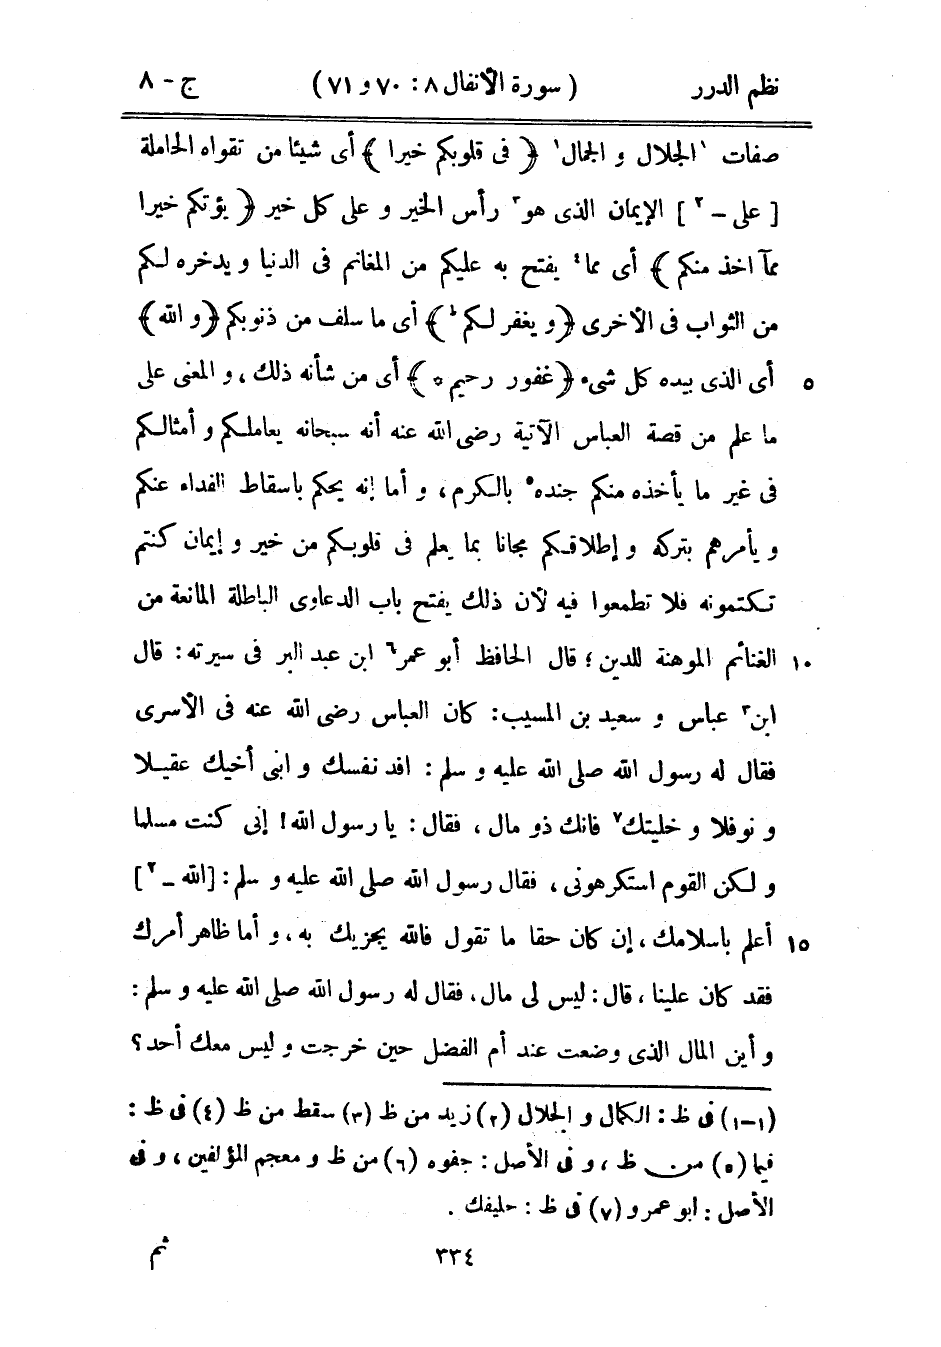 نظم الدرر ( سورة الأنفال ٨ : ٧٠ و ٧١ ) ج - ٨
صفات ١الجلال و الجمال١ ﴿ فى قلوبكم خيرا ﴾ أى شيئا من تقواه الحاملة
[ على - ٢ ] الإيمان الذى هو٣ رأس الخير و على كل خير ﴿ يؤتكم خيرا
مآ اخذ منكم ﴾ أى مما٤ يفتح به عليكم من المغانم فى الدنيا و يدخره لكم
من الثواب فى الأخرى ﴿ و يغفر لكم ط ﴾ أى ما سلف من ذنوبكم ﴿ و الله ﴾
٥ أى الذى بيده كل شىء ﴿ غفور رحيم ه ﴾ أى من شأنه ذلك ، و المعنى على
ما علم من قصة العباس الآتية رضى الله عنه أنه سبحانه يعاملكم و أمثالكم
فى غير ما يأخذه منكم جنده٥ بالكرم ، و أما إنه يحكم باسقاط الفداء عنكم
و يأمرهم بتركه و إطلاقكم مجانا بما يعلم فى قلوبكم من خير و إيمان كنتم
تكتمونه فلا تطمعوا فيه لأن ذلك يفتح باب الدعاوى الباطلة المانعة من
١٠ الغنائم الموهنة للدين ؛ قال الحافظ أبو عمر٦ ابن عبد البر فى سيرته : قال
ابن٣ عباس و سعيد بن المسيب : كان العباس رضى الله عنه فى الأسرى
فقال له رسول الله صلى الله عليه و سلم : افد نفسك و ابنى أخيك عقيلا
و نوفلا و خليتك٧ فانك ذو مال ، فقال : يا رسول الله ! إنى كنت مسلما
و لكن القوم استكرهونى ، فقال رسول الله صلى الله عليه و سلم : [ الله - ٢ ]
١٥ أعلم باسلامك ، إن كان حقا ما تقول فالله يجزيك به ، و أما ظاهر أمرك
فقد كان علينا ، قال : ليس لى مال ، فقال له رسول الله صلى الله عليه و سلم :
و أين المال الذى وضعت عند أم الفضل حين خرجت و ليس معك أحد ؟
(١-١) فى ظ : الكمال و الجلال (٢) زيد من ظ (٣) سقط من ظ (٤) فى ظ :
فيما (٥) من ظ ، و فى الأصل : جفوه (٦) من ظ و معجم المؤلفين ، و فى
الأصل : ابو عمرو (٧) فى ظ : حليفك .
٣٣٤ ثم